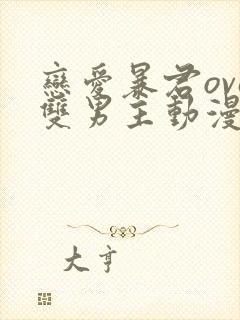 戀愛暴君ova
雙男主動漫
大亨